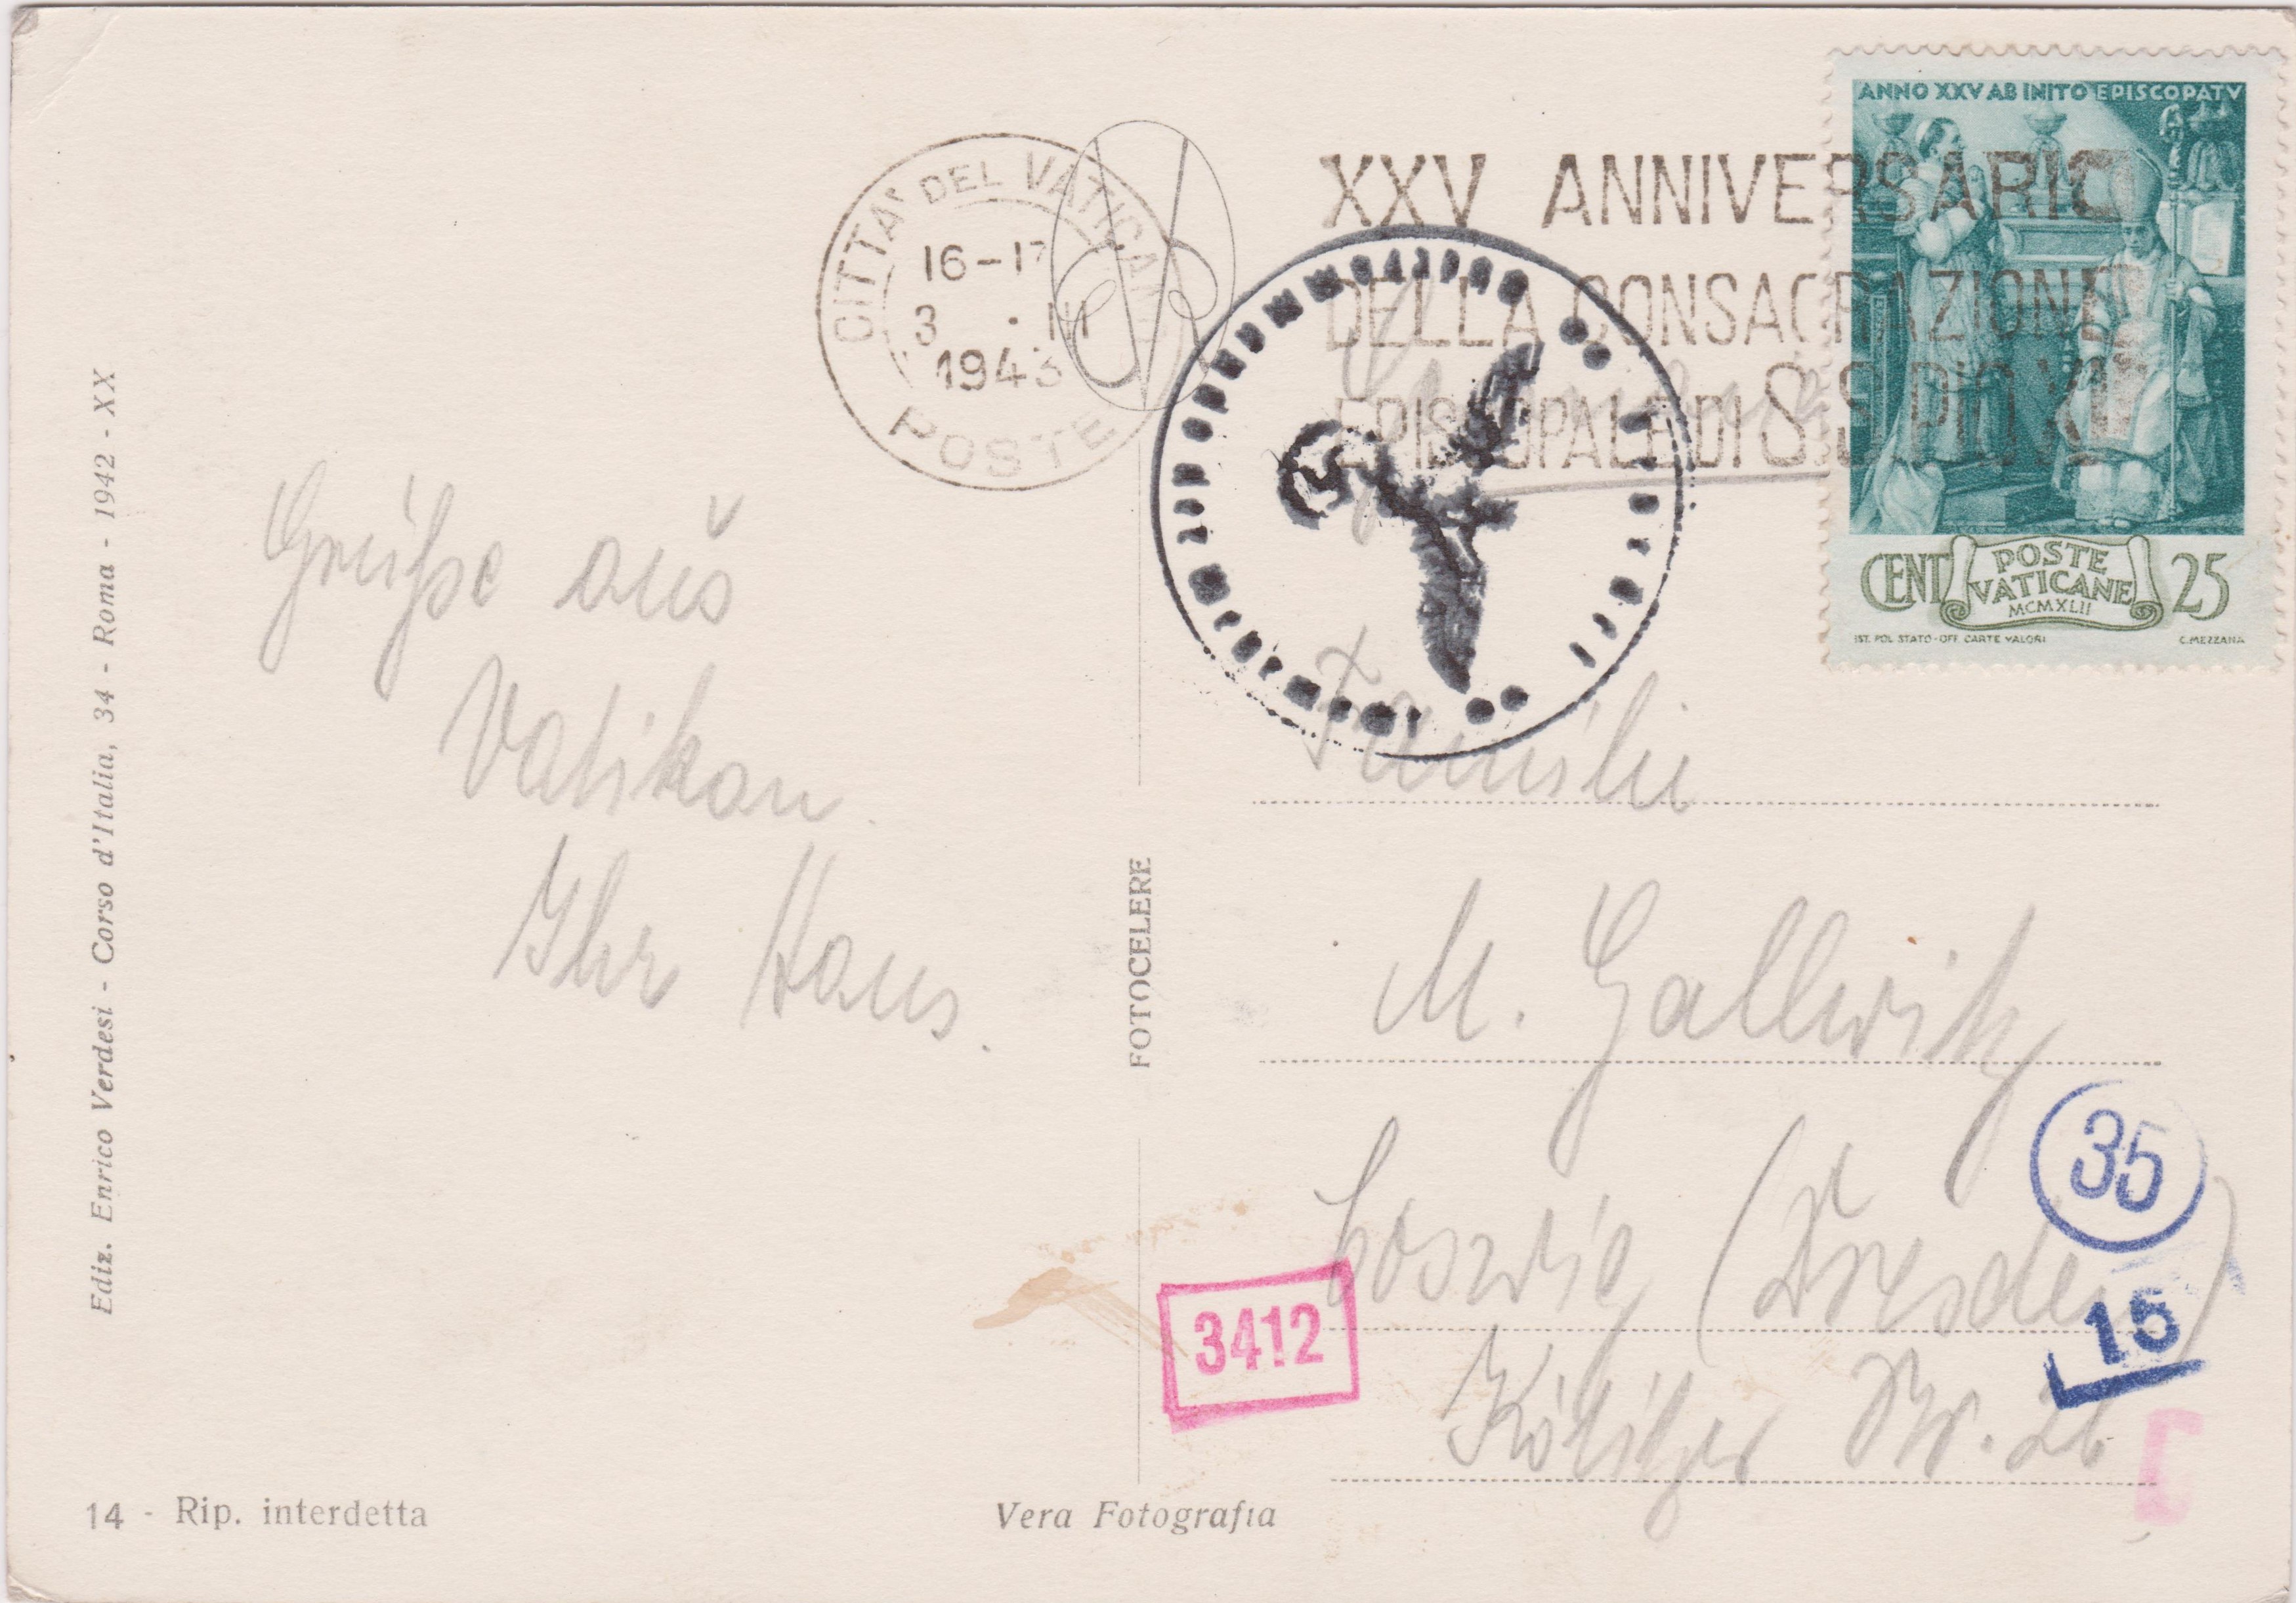 CITTA' DEL VATICANO
16-17
3 · III
1943
POSTE
XXV ANNIVERSARIO
DELLA CONSACRAZIONE
EPISCOPALE DI S.S. PIO XII
ANNO XXV AB INITO EPISCOPATV
CENT 25
POSTE
VATICANE
MCMXLII
IST. POL. STATO-OFF. CARTE VALORI C. MEZZANA
Grüße aus
Vatikan.
Ihr Hans.
Familie
M. Gallwitz
Coswig (Dresden)
Kötitzer Str. 26
35
15
3412
FOTOCELERE
Ediz. Enrico Verdesi - Corso d'Italia, 34 - Roma - 1942 - XX
14 - Rip. interdetta
Vera Fotografia